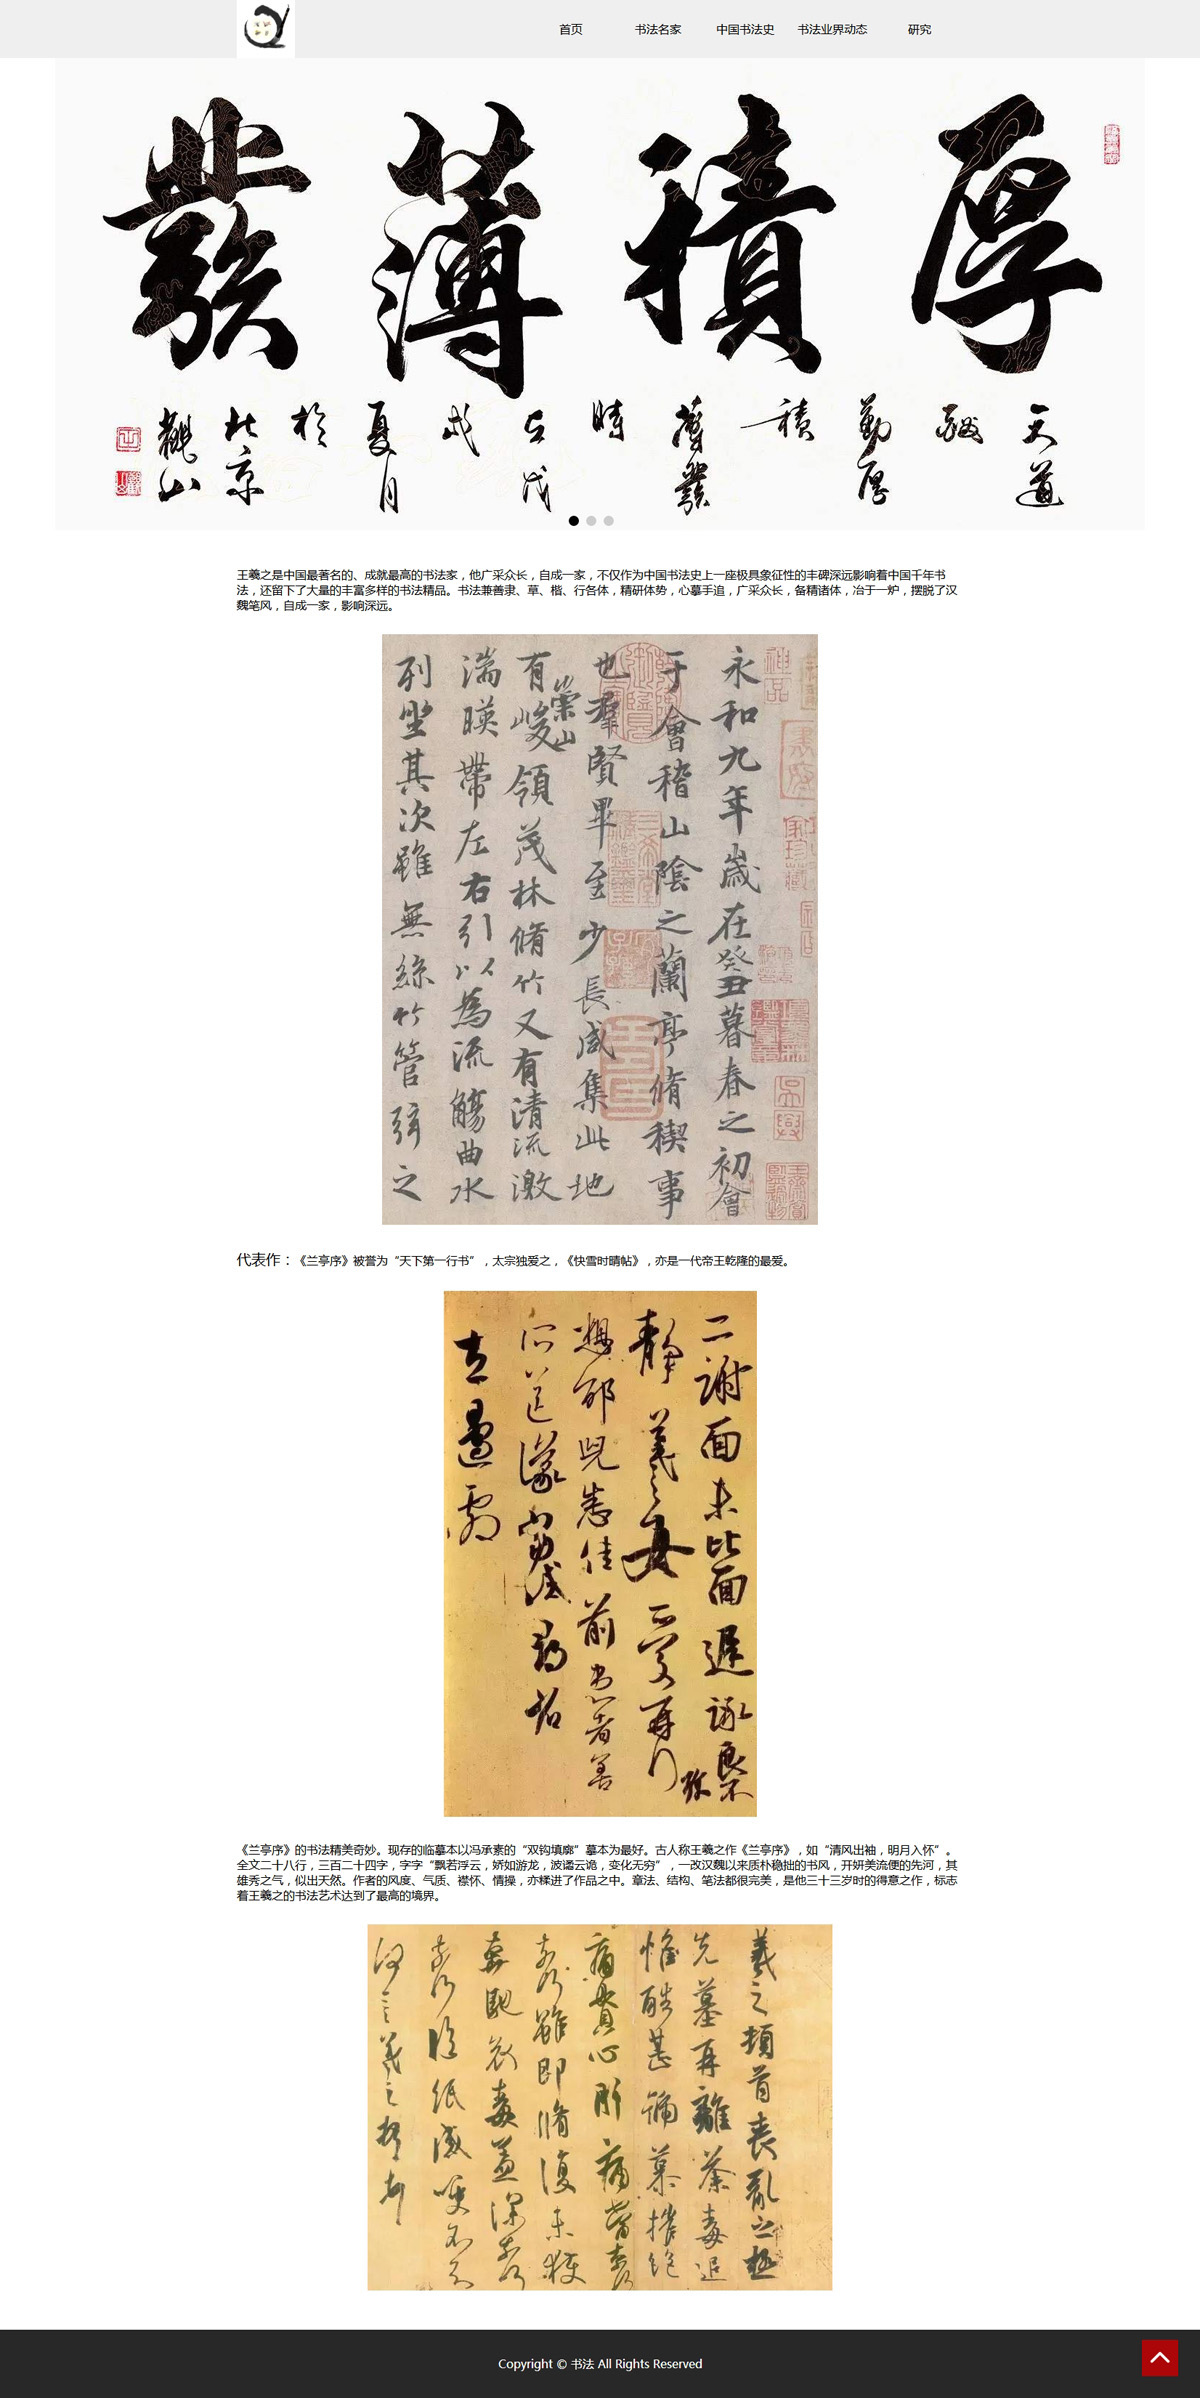 首页
书法名家
中国书法史
书法业界动态
研究
厚積薄發
天道
酬
勤厚
積
薄發
時
在戊
戌
夏月
於
北京
王羲之是中国最著名的、成就最高的书法家，他广采众长，自成一家，不仅作为中国书法史上一座极具象征性的丰碑深远影响着中国千年书
法，还留下了大量的丰富多样的书法精品。书法兼善隶、草、楷、行各体，精研体势，心摹手追，广采众长，备精诸体，冶于一炉，摆脱了汉
魏笔风，自成一家，影响深远。
永和九年歲在癸丑暮春之初會
于會稽山陰之蘭亭脩稧事
也群賢畢至少長咸集此地
有崇山峻領茂林脩竹又有清流激
湍暎帶左右引以為流觴曲水
列坐其次雖無絲竹管弦之
代表作：《兰亭序》被誉为“天下第一行书”，太宗独爱之，《快雪时晴帖》，亦是一代帝王乾隆的最爱。
二謝面未比面遲詠良不
靜羲之女愛再拜
想邵兒悉佳前患者善
所送議當試尋省
左邊劇
《兰亭序》的书法精美奇妙。现存的临摹本以冯承素的“双钩填廓”摹本为最好。古人称王羲之作《兰亭序》，如“清风出袖，明月入怀”。
全文二十八行，三百二十四字，字字“飘若浮云，娇如游龙，波谲云诡，变化无穷”，一改汉魏以来质朴稳拙的书风，开妍美流便的先河，其
雄秀之气，似出天然。作者的风度、气质、襟怀、情操，亦糅进了作品之中。章法、结构、笔法都很完美，是他三十三岁时的得意之作，标志
着王羲之的书法艺术达到了最高的境界。
羲之頓首喪亂之極
先墓再離荼毒追
惟酷甚號慕摧絕
痛貫心肝痛當柰何
柰何雖即脩復未獲
奔馳哀毒益深柰何
柰何臨紙感哽不知
何言羲之頓首
Copyright © 书法 All Rights Reserved